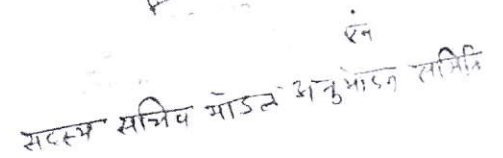 एंव
सदस्य सचिव मोडल अनुमोदन समिति